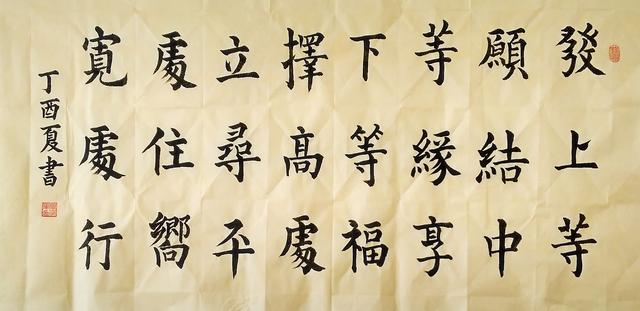 發上等
願結中
等緣享
下等福
擇高處
立尋平
處住嚮
寬處行
丁酉夏書